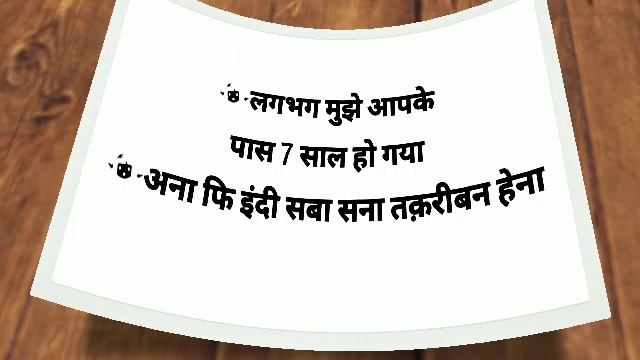 लगभग मुझे आपके
पास 7 साल हो गया
अना फि इंदी सबा सना तक़रीबन हेना